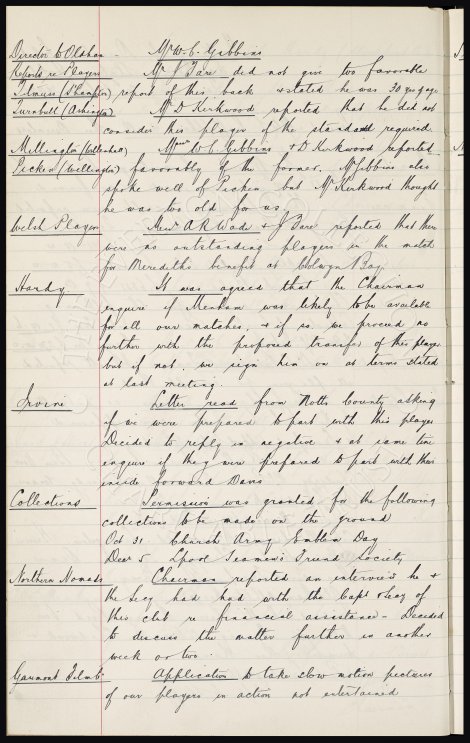 Director to Oldham - Mr W. C. Gibbins
Reports re Players Mr J Fare did not give too favorable
Filmess (S'hampton) report of this back & stated he was 30 yrs of age.
Turnbull (Ashington) Mr D. Kirkwood reported that he did not
consider this player of the standard required
Millington (Willenhall) Messrs W C Gibbins & D Kirkwood reported
Picken (Wellington) favorably of the former. Mr Gibbins also
spoke well of Picken but Mr Kirkwood thought
he was too old for us.
Welsh Players Messrs A R Wade & J Fare reported that there
were no outstanding players in the match
for Merediths benefit at Colwyn Bay.
Hardy It was agreed that the Chairman
enquire if Menham was likely to be available
for all our matches, & if so we proceed no
further with the proposed transfer of this player
but if not, we sign him on at terms stated
at last meeting.
Irvine Letter read from Notts County asking
if we were prepared to part with this player
Decided to reply in negative & at same time
enquire if they were prepared to part with their
inside forward Davis.
Collections Permission was granted for the following
collections to be made on the ground
Oct 31 Church Army Emblem Day
Decr 5 Lpool Seamen's Friend Society
Northern Nomads Chairman reported an interview he &
the Secy had had with the Capt & Secy of
this club re financial assistance - Decided
to discuss the matter further in another
week or two.
Gaumont Film Co Application to take slow motion pictures
of our players in action not entertained